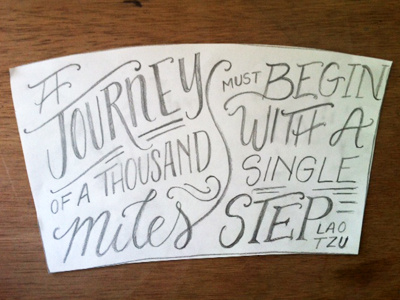 A
JOURNEY
OF A THOUSAND
miles
MUST BEGIN
WITH A
SINGLE
STEP
LAO
TZU